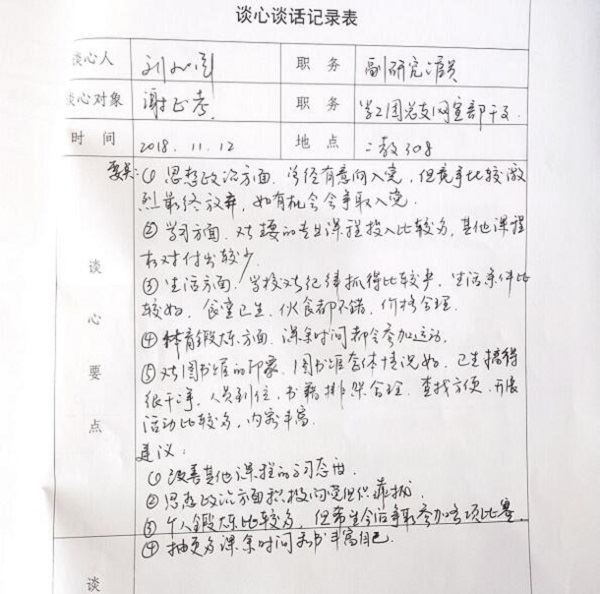 谈心谈话记录表
谈心人 刘 职 务 副研究馆员
谈心对象 谢正考 职 务 学工团总支网宣部干事
时 间 2018.11.12 地 点 二教308
要点:① 思想政治方面. 曾经有意向入党, 但竞争比较激
烈最终放弃, 如有机会会争取入党.
② 学习方面. 对主要的专业课程投入比较多, 其他课程
相对付出较少.
③ 生活方面. 学校对纪律抓得比较严, 生活条件比
较好, 食堂卫生, 伙食都不错, 价格合理.
④ 体育锻炼方面. 课余时间都会参加运动.
⑤ 对图书馆的印象. 图书馆整体情况好, 卫生搞得
很干净, 人员到位, 书籍排架合理. 查找方便. 开展
活动比较多, 内容丰富.
建议:
① 改善其他课程的学习态度.
② 思想政治方面积极向党组织靠拢.
③ 个人锻炼比较多, 但希望今后争取参加各项比赛.
④ 抽更多课余时间看书丰富自己.
谈
心
要
点
谈